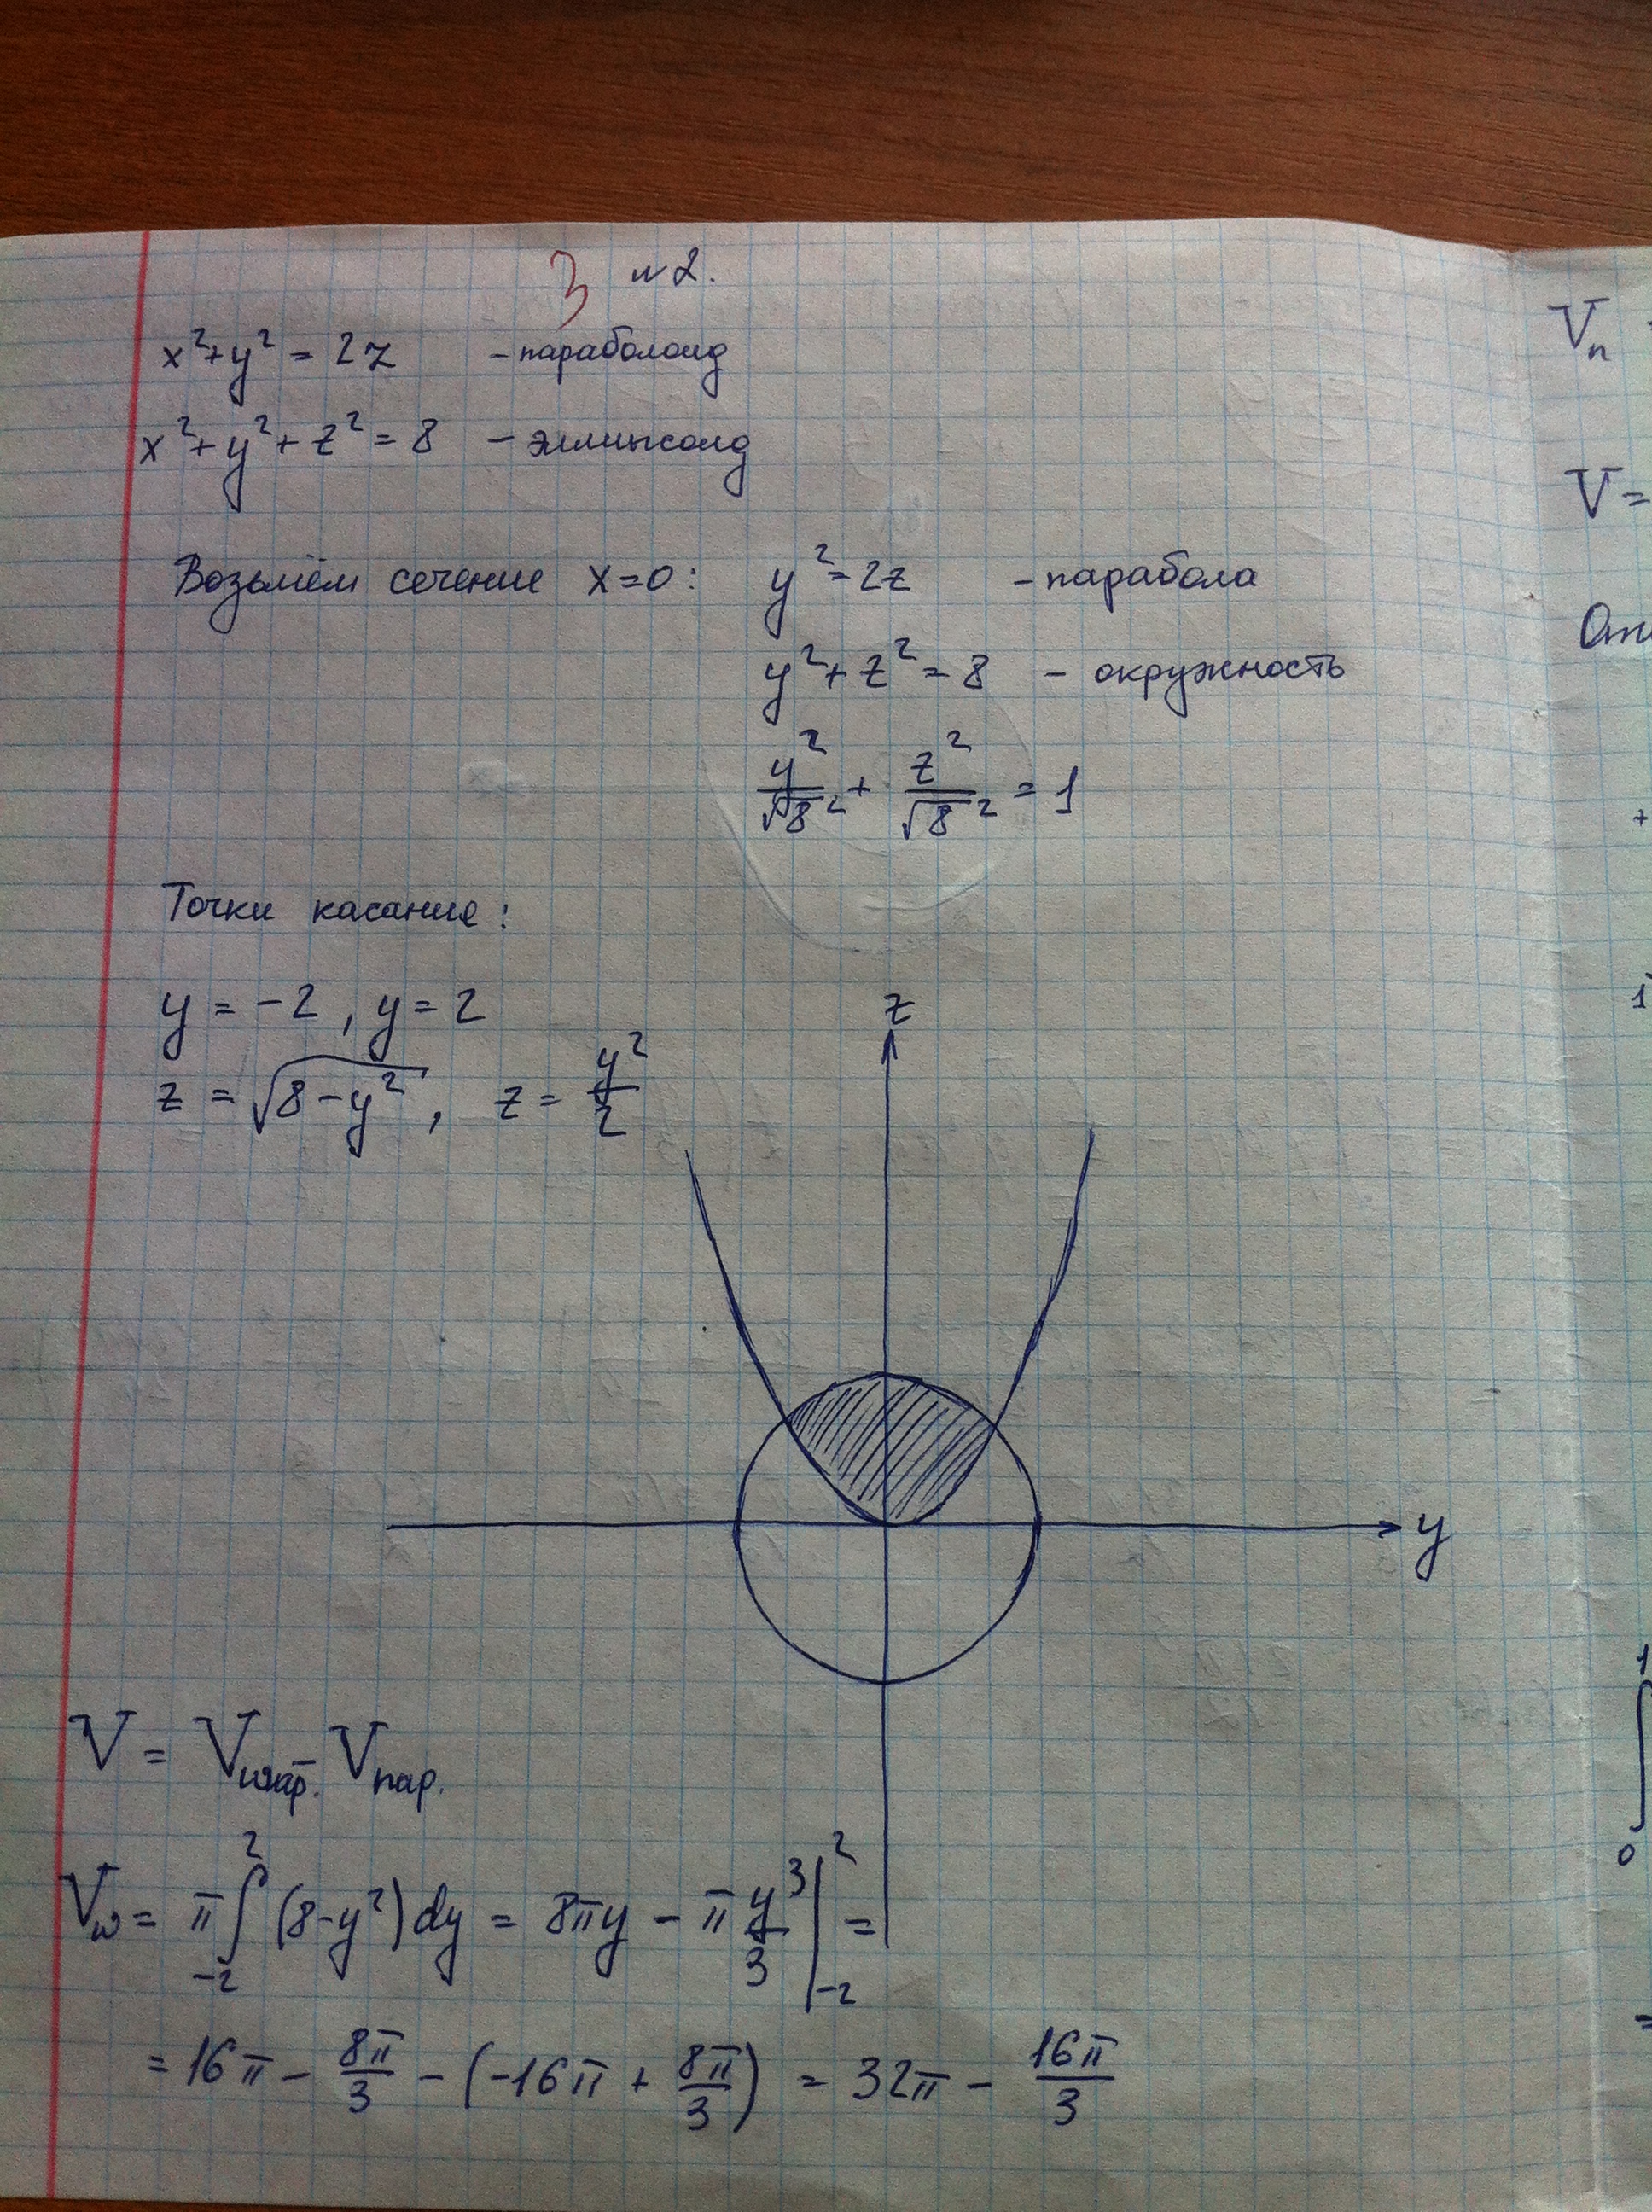 3 №2.
x²+y² = 2z - параболоид
x²+y²+z² = 8 - эллипсоид
Возьмём сечение x=0: y²=2z - парабола
y²+z²=8 - окружность
y²/√8² + z²/√8² = 1
Точки касание:
y = -2, y = 2
z = √(8-y²), z = y²/2
z
y
V = Vшар. - Vпар.
Vш = π∫₋₂² (8-y²)dy = 8πy - π y³/3 |₋₂² =
= 16π - 8π/3 - (-16π + 8π/3) = 32π - 16π/3
Vп
V=
От
+
1
1
∫
0
=